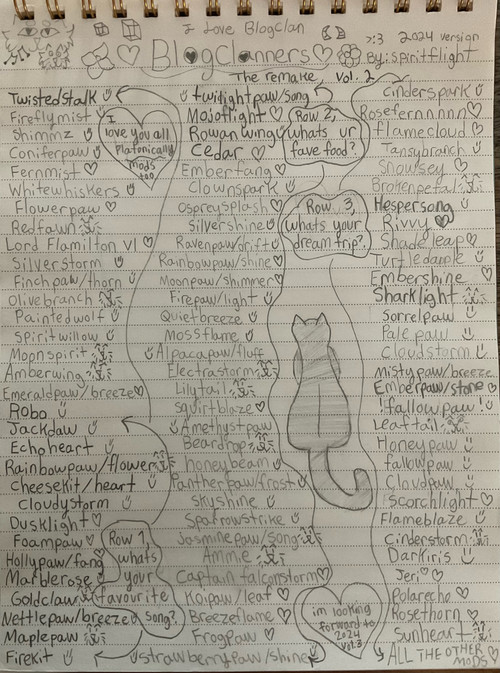 I Love BlogClan
BlogClanners
>:3 2024 version
By: Spiritflight
The remake, vol. 2
Twistedstalk
Fireflymist
Shimmz
Coniferpaw
Fernmist
Whitewhiskers
Flowerpaw
Redfawn
Lord Flamilton VI
Silverstorm
Finchpaw/thorn
Olivebranch
Paintedwolf
Spiritwillow
Moonspirit
Amberwing
Emeraldpaw/breeze
Robo
Jackdaw
Echoheart
Rainbowpaw/flower
Cheesekit/heart
Cloudystorm
Dusklight
Foampaw
Hollypaw/fang
Marblerose
Goldclaw
Nettlepaw/breeze
Maplepaw
Firekit
I
love you all
Platonically
mods
too
Row 1,
whats
your
favourite
song?
twilightpaw/song
Mojoflight
Rowanwing
Cedar
Emberfang
Clownspark
Ospreysplash
Silvershine
Ravenpaw/drift
Rainbowpaw/shine
Moonpaw/shimmer
Firepaw/light
Quietbreeze
Mossflame
Alpacapaw/fluff
Electrastorm
Lilytail
Squirtblaze
Amethystpaw
Beardrop
honeybeam
Pantherpaw/frost
Skyshine
Sparrowstrike
Jasminepaw/song
Ammie
Captain talconstorm
Koipaw/leaf
Breezeflame
Frogpaw
strawberrypaw/shine
Row 2,
whats ur
fave food?
Row 3,
whats your
dream trip?
im looking
forward to
2024
vol.3
Cinderspark
Rosefernnnnn
Flamecloud
Tansybranch
Snowsey
Brokenpetal
Hespersong
Rivvy
Shadeleap
Turtledapple
Embershine
Sharklight
Sorrelpaw
Palepaw
Cloudstorm
Mistypaw/breeze
Emberpaw/stone
!fallowpaw!
Leaftail
Honeypaw
fallowpaw
Clovepaw
Scorchlight
Flameblaze
Cinderstorm
Darkiris
Jeri
Polarecho
Rosethorn
Sunheart
ALL THE OTHER
MODS